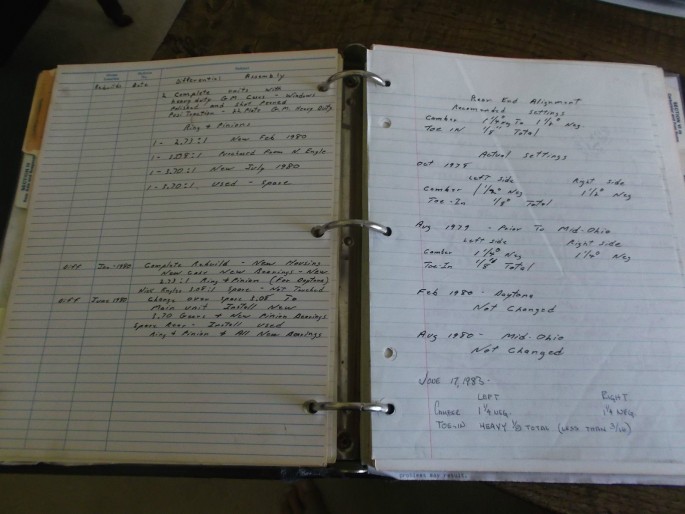 Rebuilds Date
Differential Assembly
2 Complete units with
heavy duty G.M. Cases - Windows
Polished and Shot Peened
Posi Traction - 22 Plate G.M. Heavy Duty
Ring & Pinions
1 - 2.73:1 New Feb 1980
1 - 3.08:1 Purchased From N. Engle
1 - 3.70:1 New July 1980
1 - 3.70:1 Used - Spare
Diff Jan-1980 Complete Rebuild - New Housing
New Case New Bearings - New
2.73:1 Ring & Pinion (For Daytona)
3.08:1 Spare - Not Touched
Diff June 1980 Change over spare 3.08 To
Main unit Install New
3.70 Gears & New Pinion Bearings
Spare Rear - Install used
Ring & Pinion & All New Bearings
Rear End Alignment
Recomended settings
Camber To 1 1/2° Neg.
Toe IN 1/8" Total
Actual settings
Oct 1978
Left Side Right Side
Camber 1 1/2° Neg 1 1/2° Neg
Toe-In 1/8" Total
Aug 1979 - Prior To Mid-Ohio
Left side Right Side
Camber 1 1/4° Neg 1 1/4° Neg
Toe-In 1/8" Total
Feb 1980 - Daytona
Not Changed
Aug 1980 - Mid-Ohio
Not Changed
JUNE 17, 1983 -
LEFT RIGHT
CAMBER 1 1/4 NEG. 1 1/4 NEG.
TOE-IN HEAVY 1/8 TOTAL (LESS THAN 3/16)
problems may result.